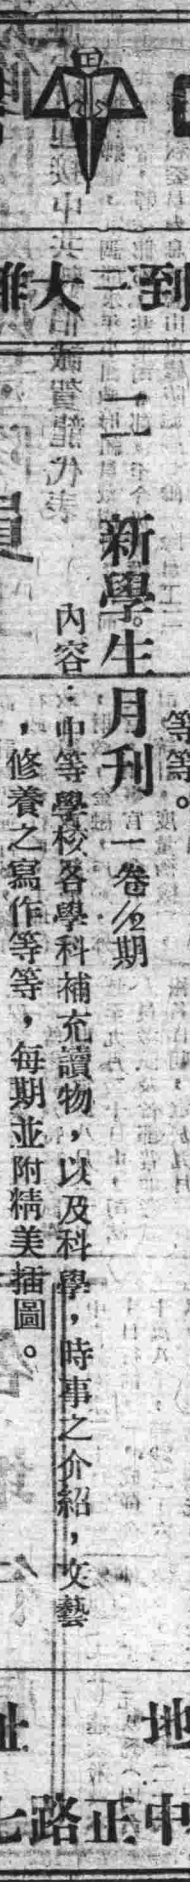 正
到一大雜
等等。
二 新學生月刊 一卷五期
內容：中等學校各學科補充讀物，以及科學，時事之介紹，文藝
，修養之寫作等等，每期並附精美插圖。
地址
中正路七